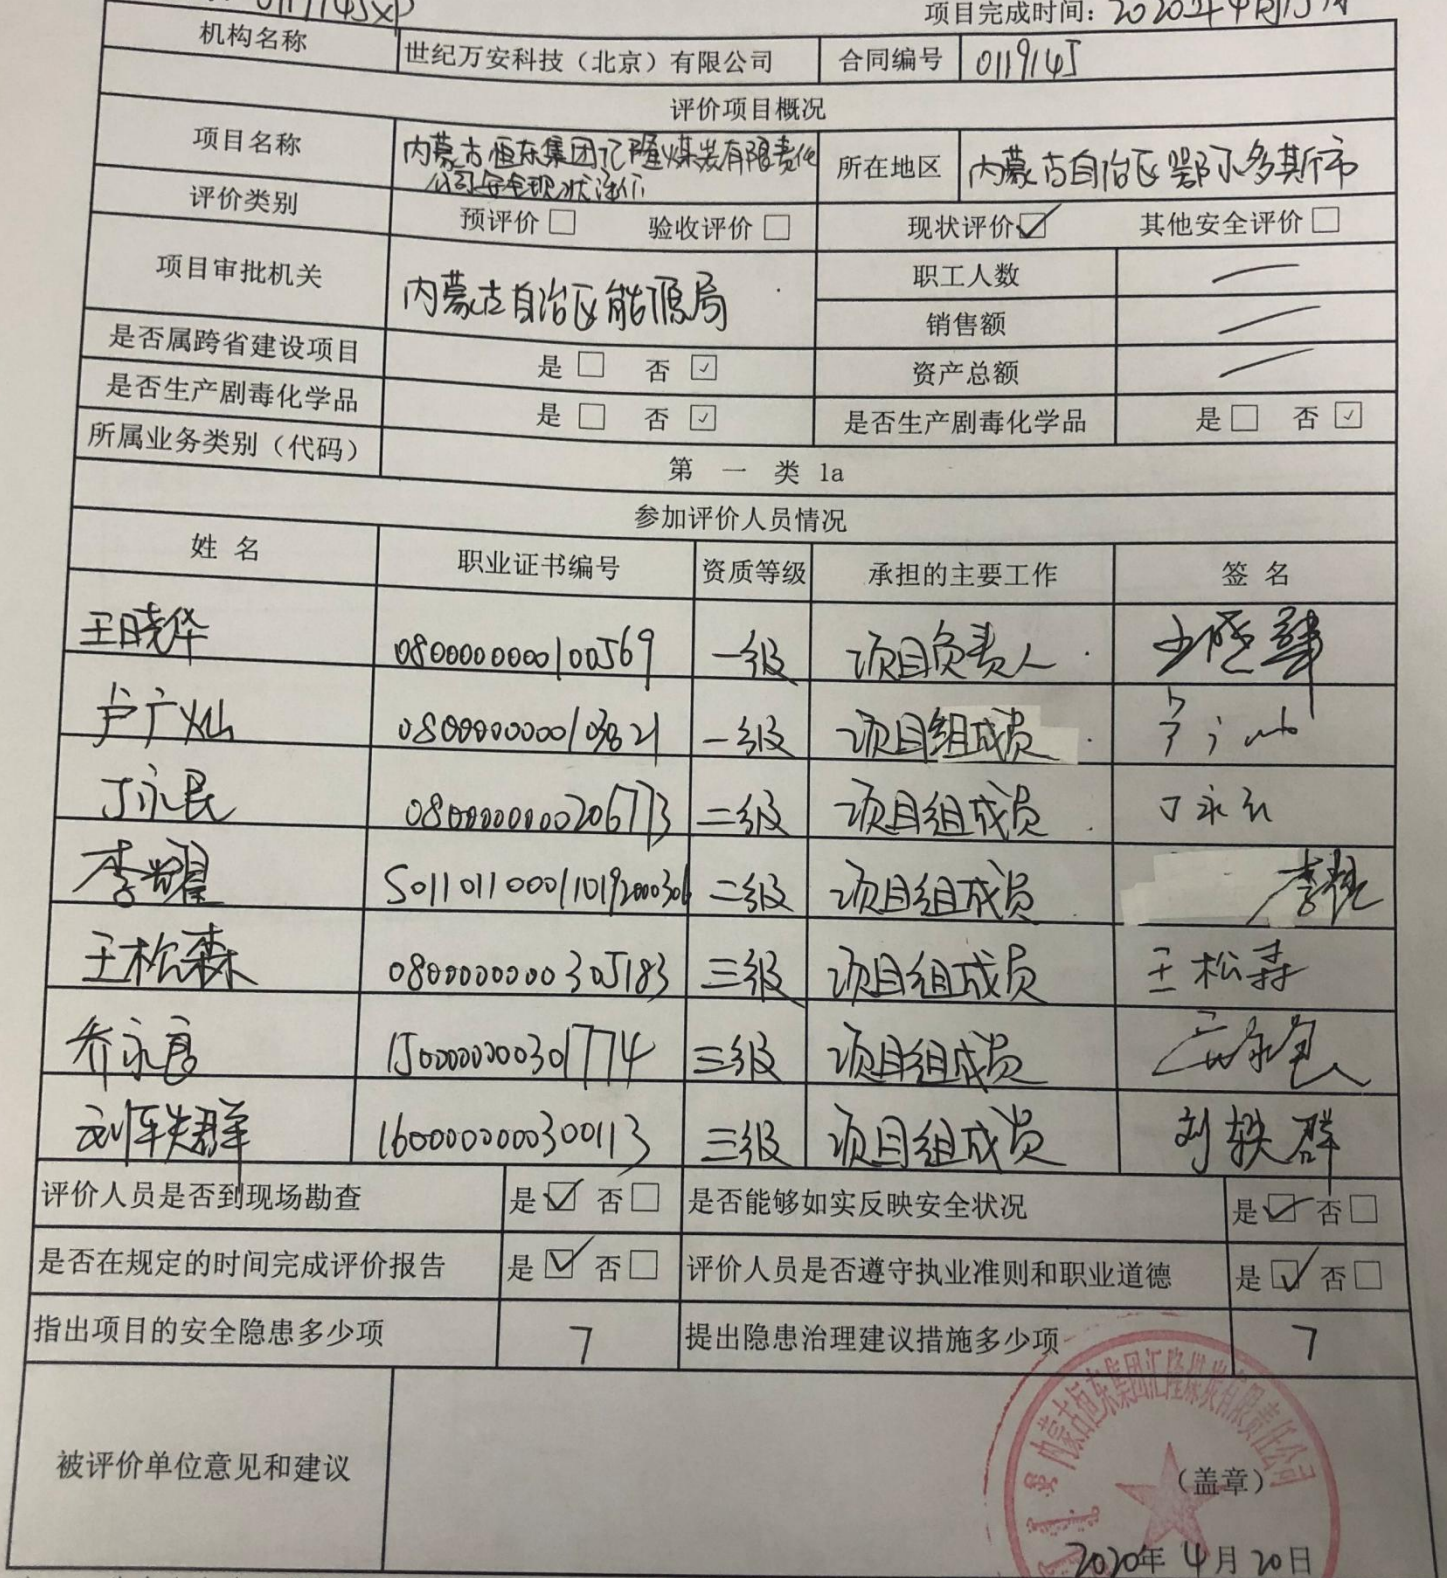 项目完成时间：2020年4月15日
机构名称 世纪万安科技（北京）有限公司 合同编号 011914J
评价项目概况
项目名称 内蒙古恒东集团汇隆煤炭有限责任 所在地区 内蒙古自治区鄂尔多斯市
公司安全现状评价
评价类别 预评价□ 验收评价□ 现状评价☑ 其他安全评价□
项目审批机关 内蒙古自治区能源局 职工人数 —
销售额 —
是否属跨省建设项目 是 □ 否 ☑ 资产总额 —
是否生产剧毒化学品 是 □ 否 ☑ 是否生产剧毒化学品 是□ 否 ☑
所属业务类别（代码） 第 一 类 1a
参加评价人员情况
姓 名 职业证书编号 资质等级 承担的主要工作 签 名
王晓华 0800000000100569 一级 项目负责人 王晓华
卢广灿 一级 项目组成员
丁永民 0800000000206773 二级 项目组成员 丁永民
李耀 二级 项目组成员 李耀
王松森 0800000000305183 三级 项目组成员 王松森
乔永良 1500000000301774 三级 项目组成员
刘轶群 1600000000300113 三级 项目组成员 刘轶群
评价人员是否到现场勘查 是☑ 否□ 是否能够如实反映安全状况 是☑ 否□
是否在规定的时间完成评价报告 是☑ 否□ 评价人员是否遵守执业准则和职业道德 是☑ 否□
指出项目的安全隐患多少项 7 提出隐患治理建议措施多少项 7
内蒙古恒东集团汇隆煤炭有限责任公司
被评价单位意见和建议 （盖章）
2020年 4月 20日